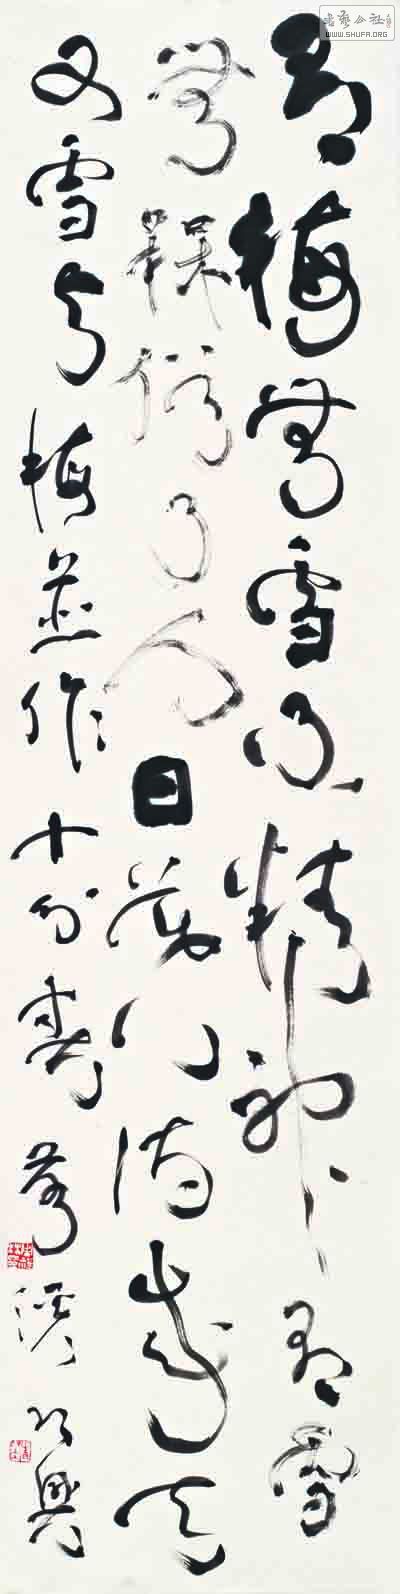 有梅無雪不精神有雪
無俗了人日詩成天
又雪与梅並作十分春
书艺公社
WWW.SHUFA.ORG